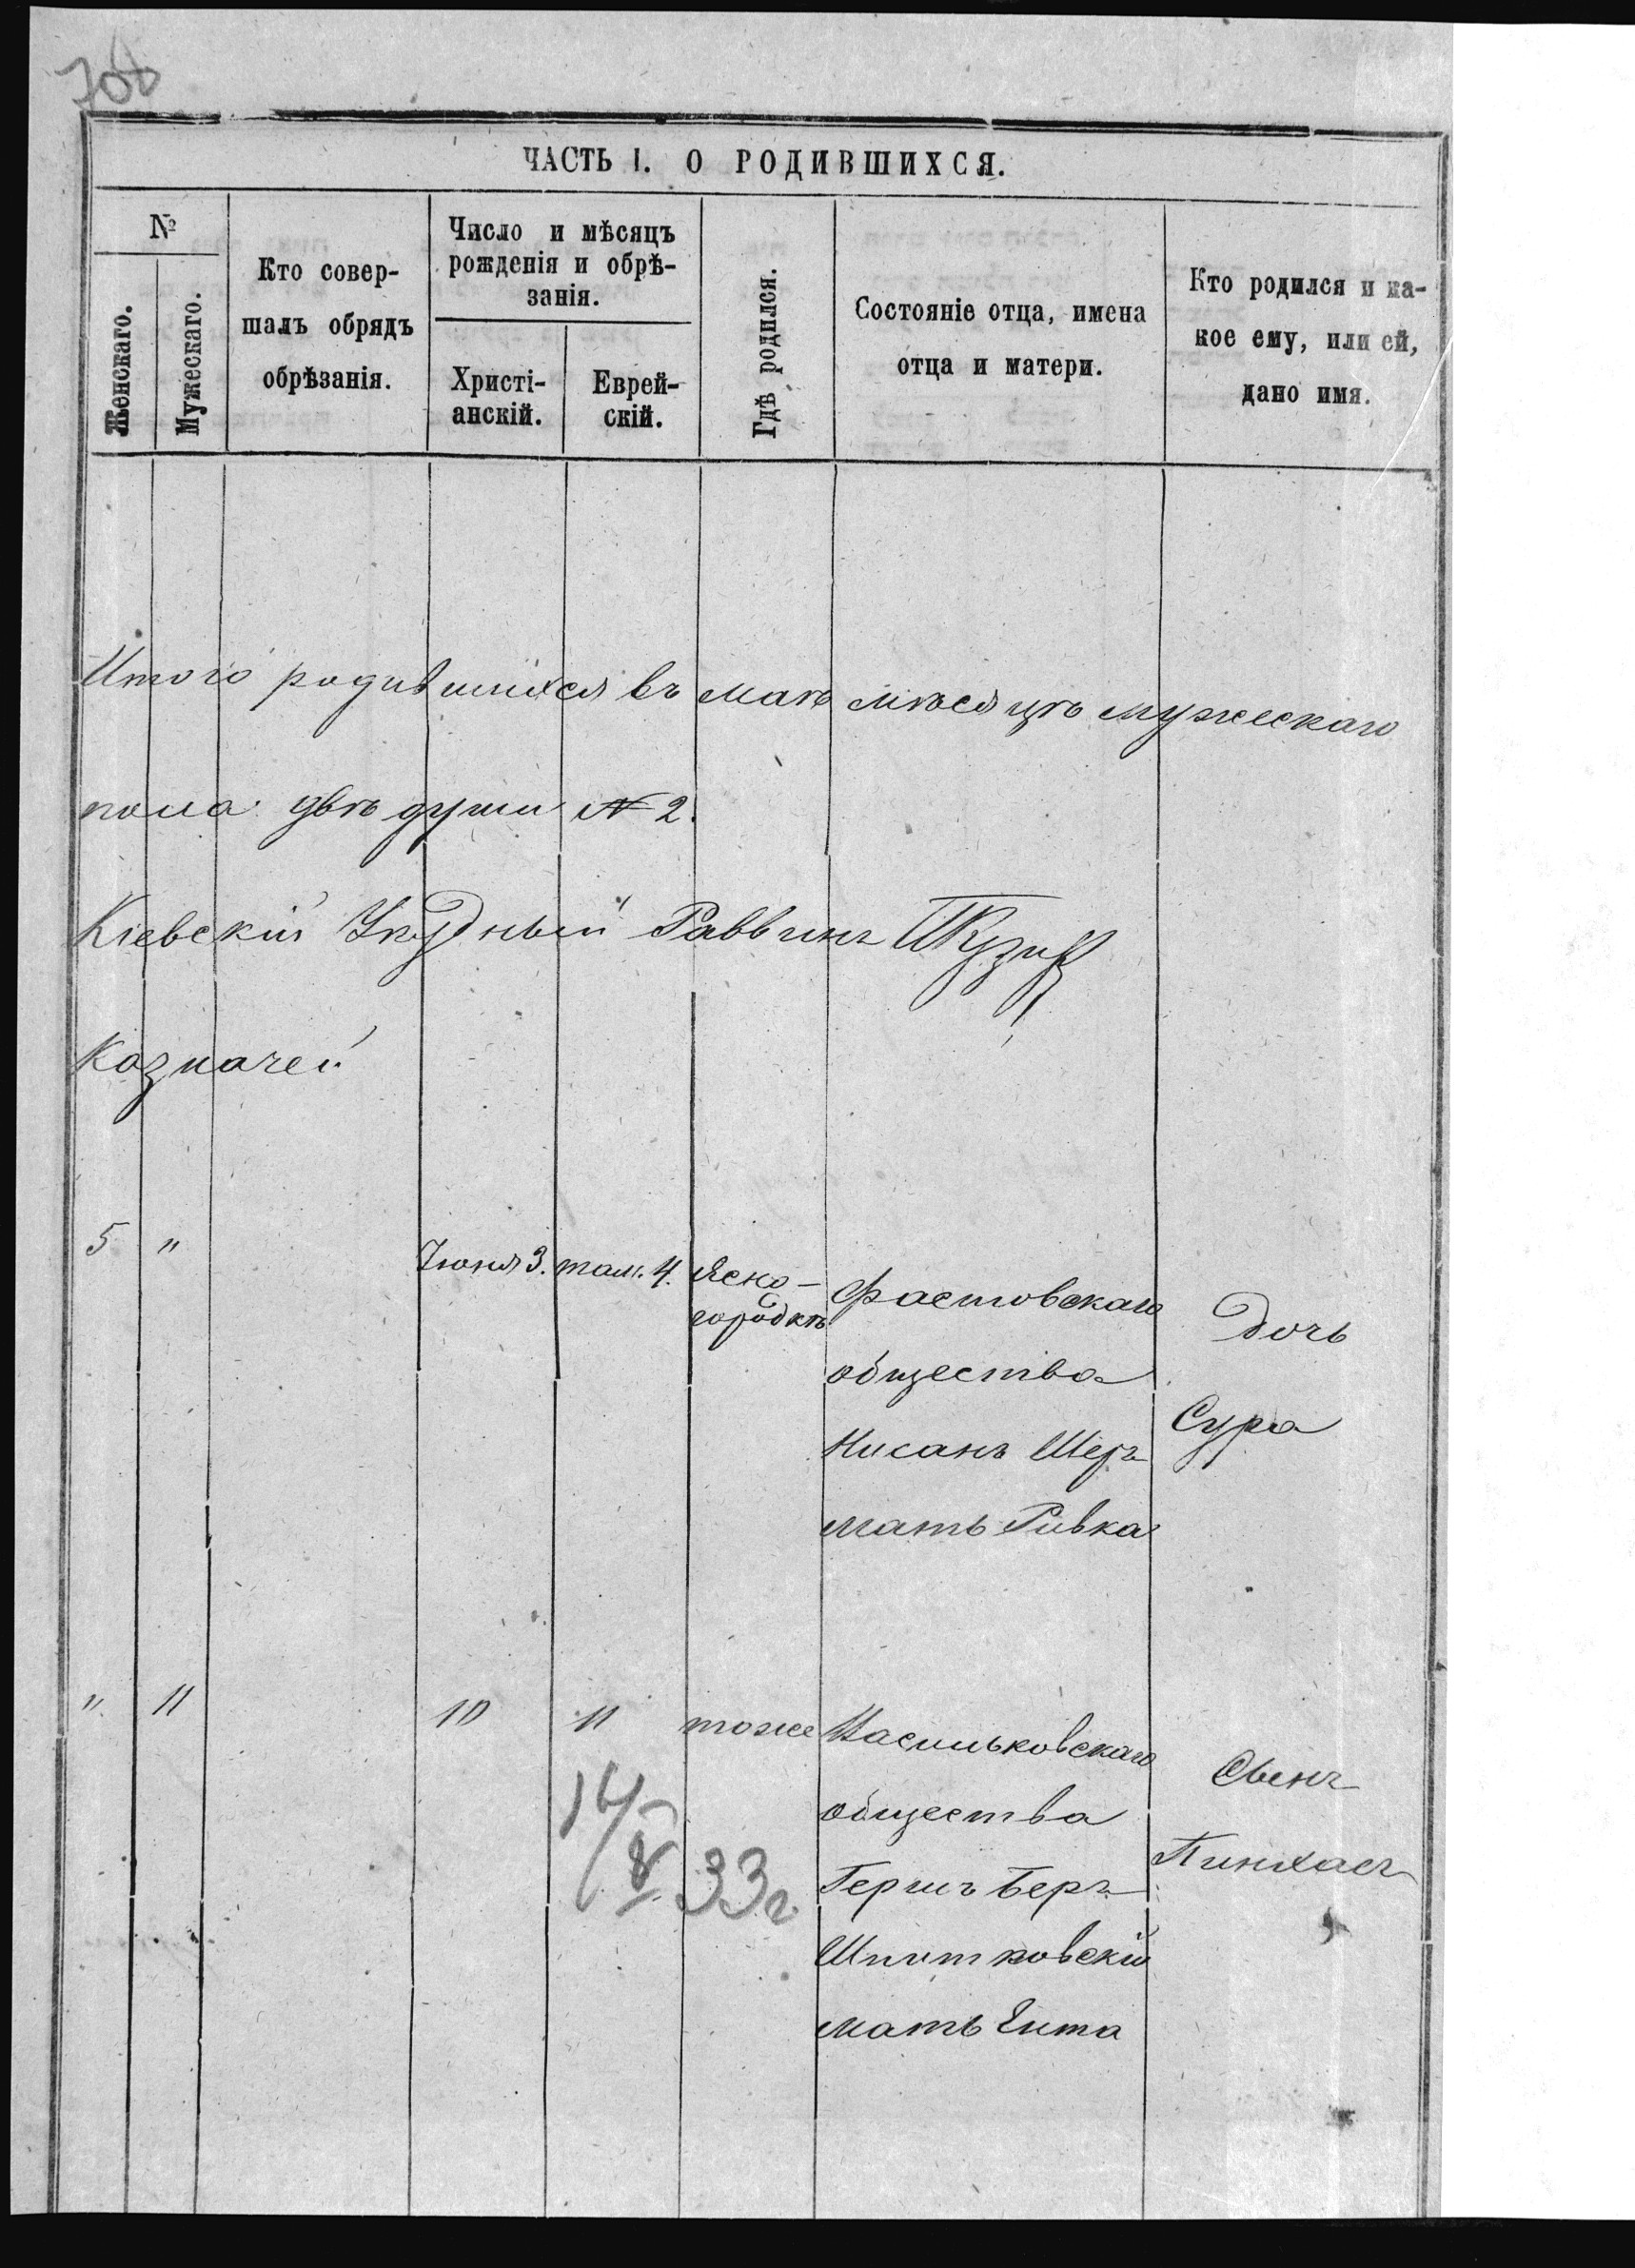 708
ЧАСТЬ I. О РОДИВШИХСЯ.
№
Женскаго.
Мужескаго.
Кто совер-
шалъ обрядъ
обрѣзанія.
Число и мѣсяцъ
рожденія и обрѣ-
занія.
Христі-
анскій.
Еврей-
скій.
Гдѣ родился.
Состояніе отца, имена
отца и матери.
Кто родился и ка-
кое ему, или ей,
дано имя.
Итого родившихся въ маѣ мѣсяцѣ мужескаго
пола двѣ души № 2.
Кіевскій Уѣздный Раввинъ
Казначей
5 " Іюня 3. там. 4. Ясно-
городкѣ
Фастовскаго
общества
Нисанъ Шеръ
мать Ривка
Дочь
Сура
" 11 10 11 тоже Васильковскаго
общества
Гершъ Беръ
Шпитковскій
мать Ента
Сынъ
Пинхасъ
14/V 33г.